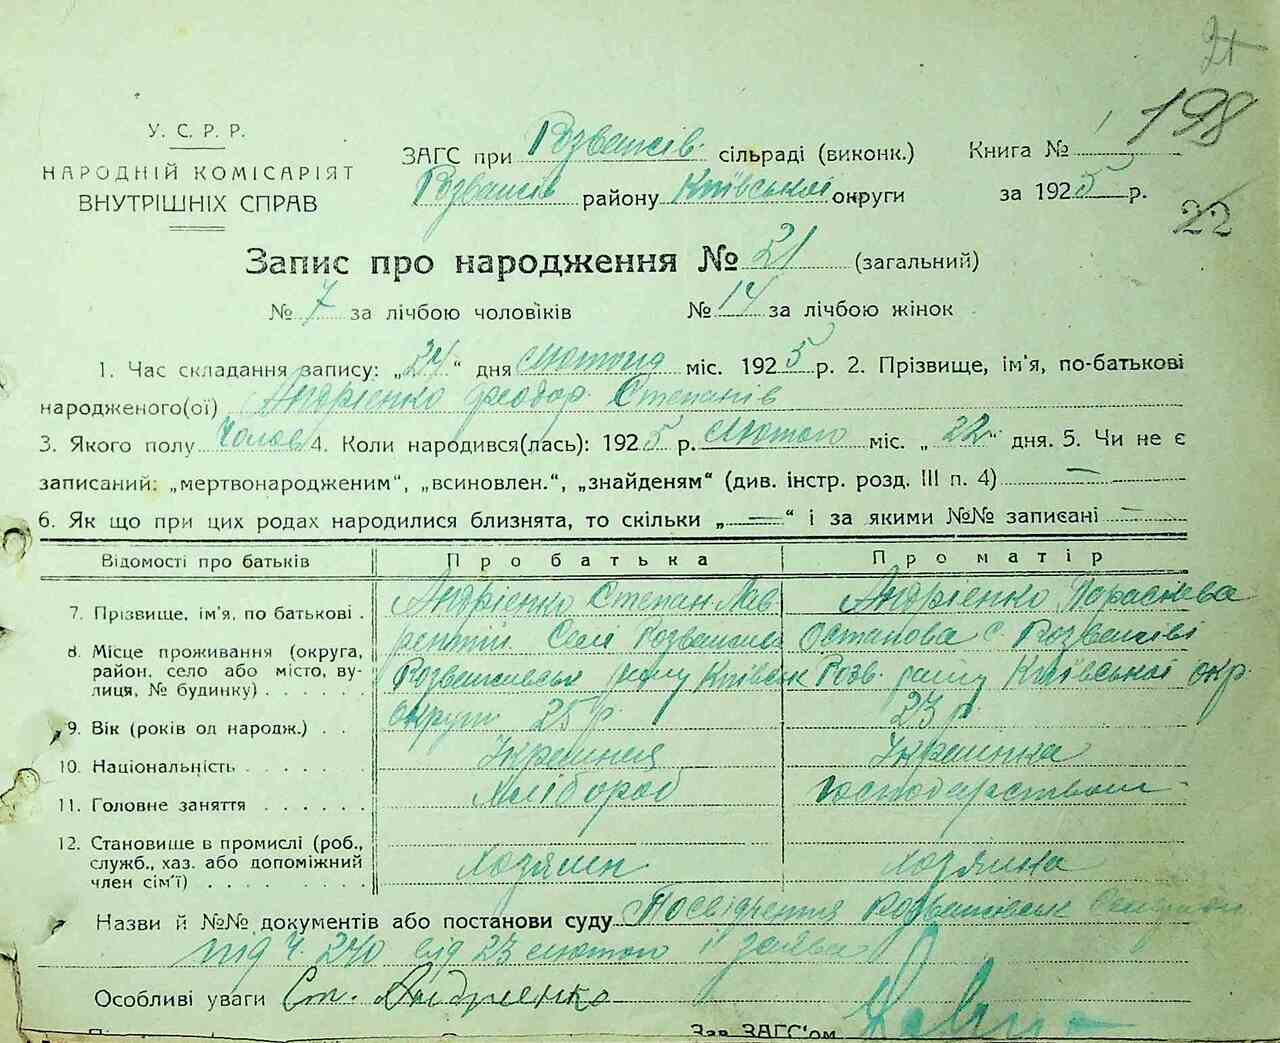 198
22
У. С. Р. Р.
НАРОДНІЙ КОМІСАРІЯТ
ВНУТРІШНІХ СПРАВ
ЗАГС при Розважів. сільраді (виконк.) Книга №
Розважів району Київської округи за 1925 р.
Запис про народження № 21 (загальний)
№ 7 за лічбою чоловіків № 14 за лічбою жінок
1. Час складання запису: „24“ дня лютого міс. 1925 р. 2. Прізвище, ім'я, по-батькові
народженого(ої) Андрієнко Феодор Степанів
3. Якого полу Чолов 4. Коли народився(лась): 1925 р. Лютого міс. „22“ дня. 5. Чи не є
записаний: „мертвонародженим“, „всиновлен.“, „знайденям“ (див. інстр. розд. III п. 4) —
6. Як що при цих родах народилися близнята, то скільки „—“ і за якими №№ записані —
Відомості про батьків Про батька Про матір
7. Прізвище, ім'я, по батькові . Андрієнко Степан Лав Андрієнко Параскева
8. Місце проживання (округа, Селі Розважіві Остапова с. Розважіві
район, село або місто, ву- Розважівськ району Київськ Розв. району Київської окр.
лиця, № будинку) . . . . .
9. Вік (років од народж.) . . округи 25 р. 23 р.
10. Національність . . . . . Украинец Украинка
11. Головне заняття . . . . . . Хлібороб Господарством
12. Становище в промислі (роб.,
служб., хаз. або допоміжний Хозяин Хозяина
член сім'ї) . . . . . . .
Назви й №№ документів або постанови суду Посвідчення Розважівськ
під ч. 240 від 23 лютого і заява
Особливі уваги Ст. Андриенко
Зав ЗАГС'ом